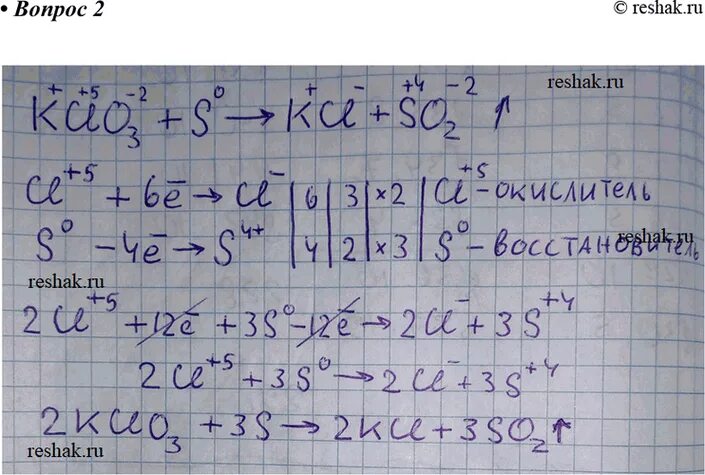 • Вопрос 2
© reshak.ru
reshak.ru
K⁺Cl⁺⁵O₃⁻² + S⁰ → K⁺Cl⁻ + S⁺⁴O₂⁻² ↑
Cl⁺⁵ + 6ē → Cl⁻ | 6 | 3 | ×2 | Cl⁺⁵ - окислитель
S⁰ - 4ē → S⁴⁺ | 4 | 2 | ×3 | S⁰ - восстановитель
reshak.ru
reshak.ru
2Cl⁺⁵ + 12ē + 3S⁰ - 12ē → 2Cl⁻ + 3S⁺⁴
2Cl⁺⁵ + 3S⁰ → 2Cl⁻ + 3S⁺⁴
2KClO₃ + 3S → 2KCl + 3SO₂↑
reshak.ru
reshak.ru